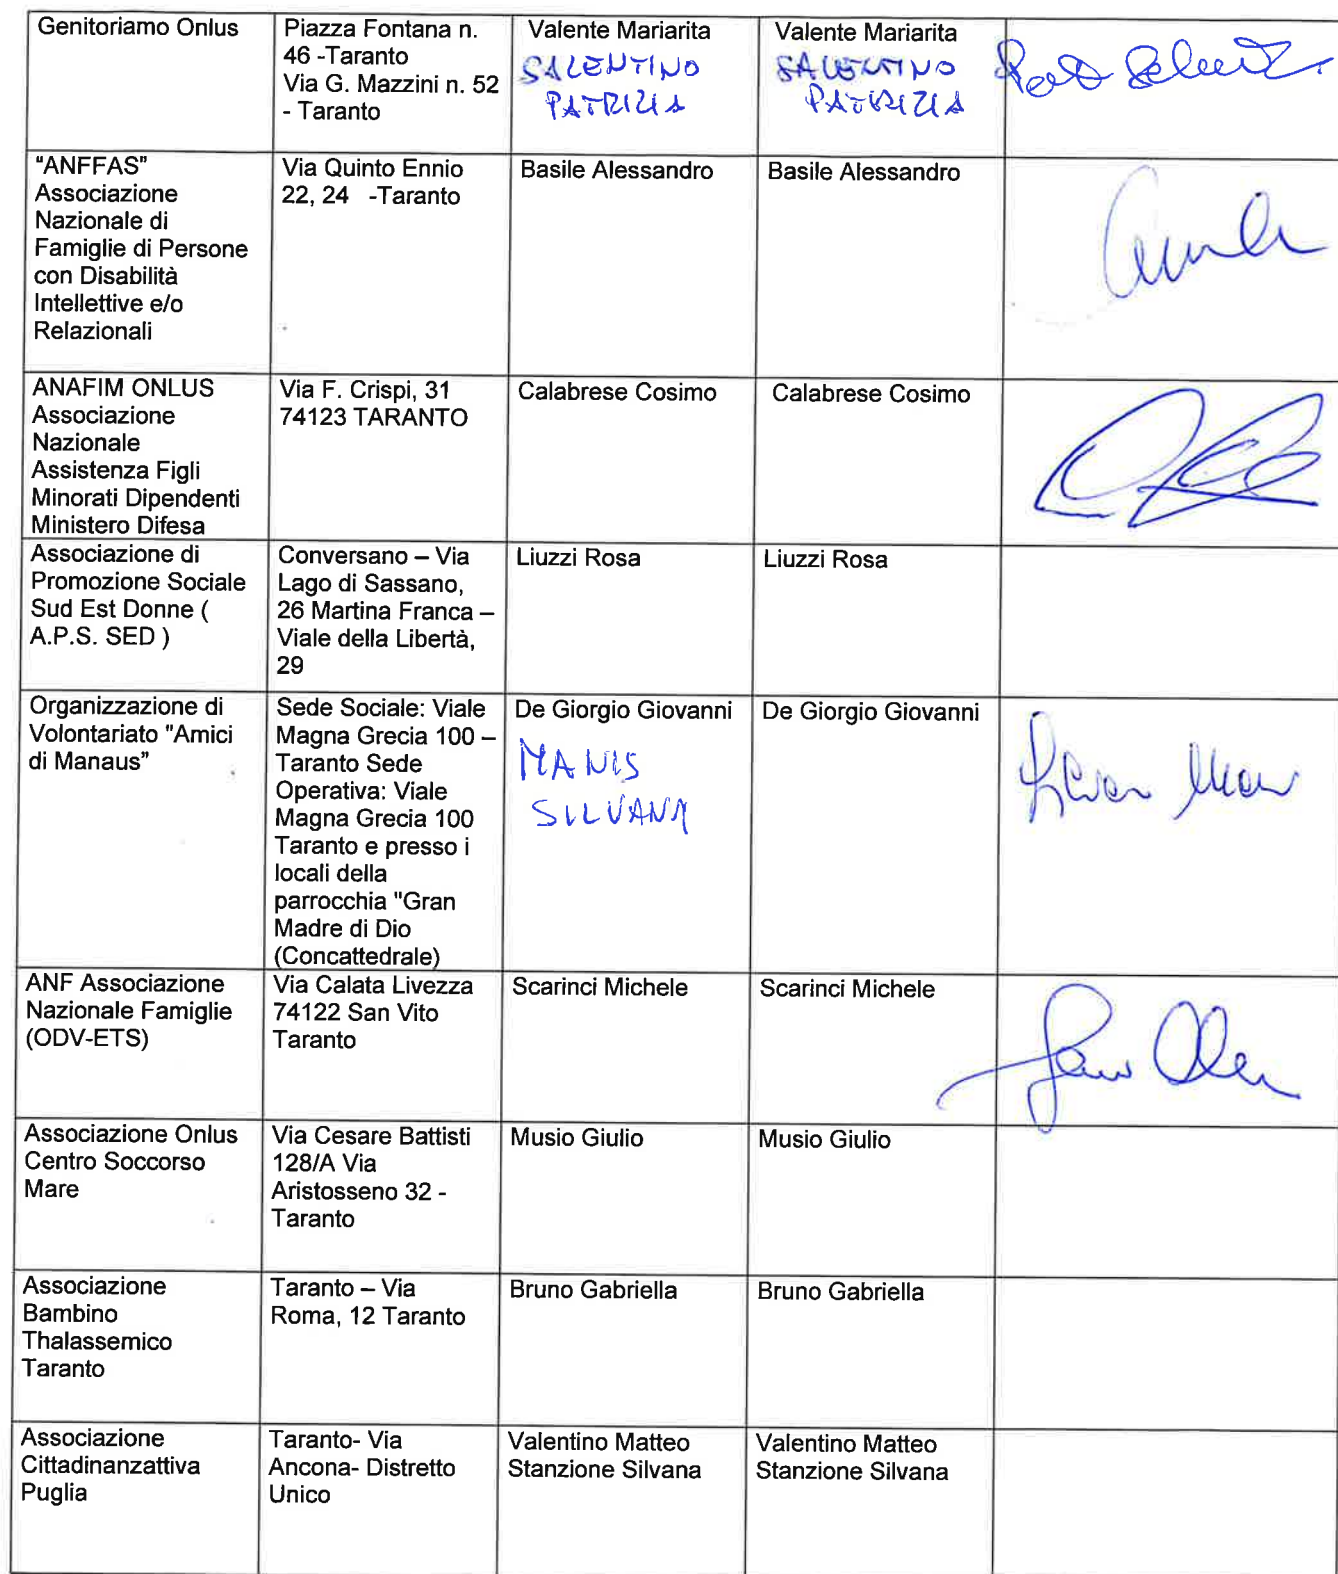 Genitoriamo Onlus
Piazza Fontana n.
46 -Taranto
Via G. Mazzini n. 52
- Taranto
Valente Mariarita
SALENTINO
PATRIZIA
Valente Mariarita
SALENTINO
PATRIZIA
"ANFFAS"
Associazione
Nazionale di
Famiglie di Persone
con Disabilità
Intellettive e/o
Relazionali
Via Quinto Ennio
22, 24 -Taranto
Basile Alessandro
Basile Alessandro
ANAFIM ONLUS
Associazione
Nazionale
Assistenza Figli
Minorati Dipendenti
Ministero Difesa
Via F. Crispi, 31
74123 TARANTO
Calabrese Cosimo
Calabrese Cosimo
Associazione di
Promozione Sociale
Sud Est Donne (
A.P.S. SED )
Conversano – Via
Lago di Sassano,
26 Martina Franca –
Viale della Libertà,
29
Liuzzi Rosa
Liuzzi Rosa
Organizzazione di
Volontariato "Amici
di Manaus"
Sede Sociale: Viale
Magna Grecia 100 –
Taranto Sede
Operativa: Viale
Magna Grecia 100
Taranto e presso i
locali della
parrocchia "Gran
Madre di Dio
(Concattedrale)
De Giorgio Giovanni
MANIS
SILVANA
De Giorgio Giovanni
ANF Associazione
Nazionale Famiglie
(ODV-ETS)
Via Calata Livezza
74122 San Vito
Taranto
Scarinci Michele
Scarinci Michele
Associazione Onlus
Centro Soccorso
Mare
Via Cesare Battisti
128/A Via
Aristosseno 32 -
Taranto
Musio Giulio
Musio Giulio
Associazione
Bambino
Thalassemico
Taranto
Taranto – Via
Roma, 12 Taranto
Bruno Gabriella
Bruno Gabriella
Associazione
Cittadinanzattiva
Puglia
Taranto- Via
Ancona- Distretto
Unico
Valentino Matteo
Stanzione Silvana
Valentino Matteo
Stanzione Silvana